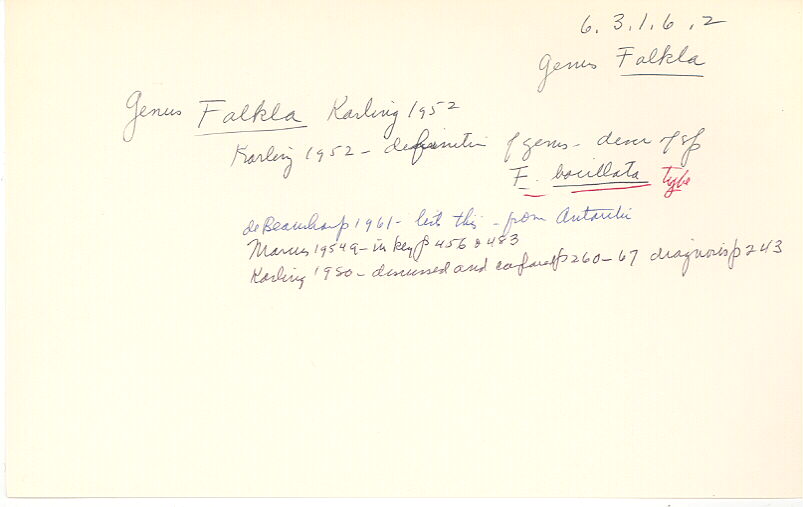 6.3.1.6.2
Genus Falkla
Genus Falkla Karling 1952
Karling 1952 - definition of genus - descr of sp
F. bacillata type
deBeauchamp 1961 - list this - from Antarctic
Marcus 1954a - in key p 456 & 483
Karling 1980 - discussed and compared p 260-67 diagnosis p 243